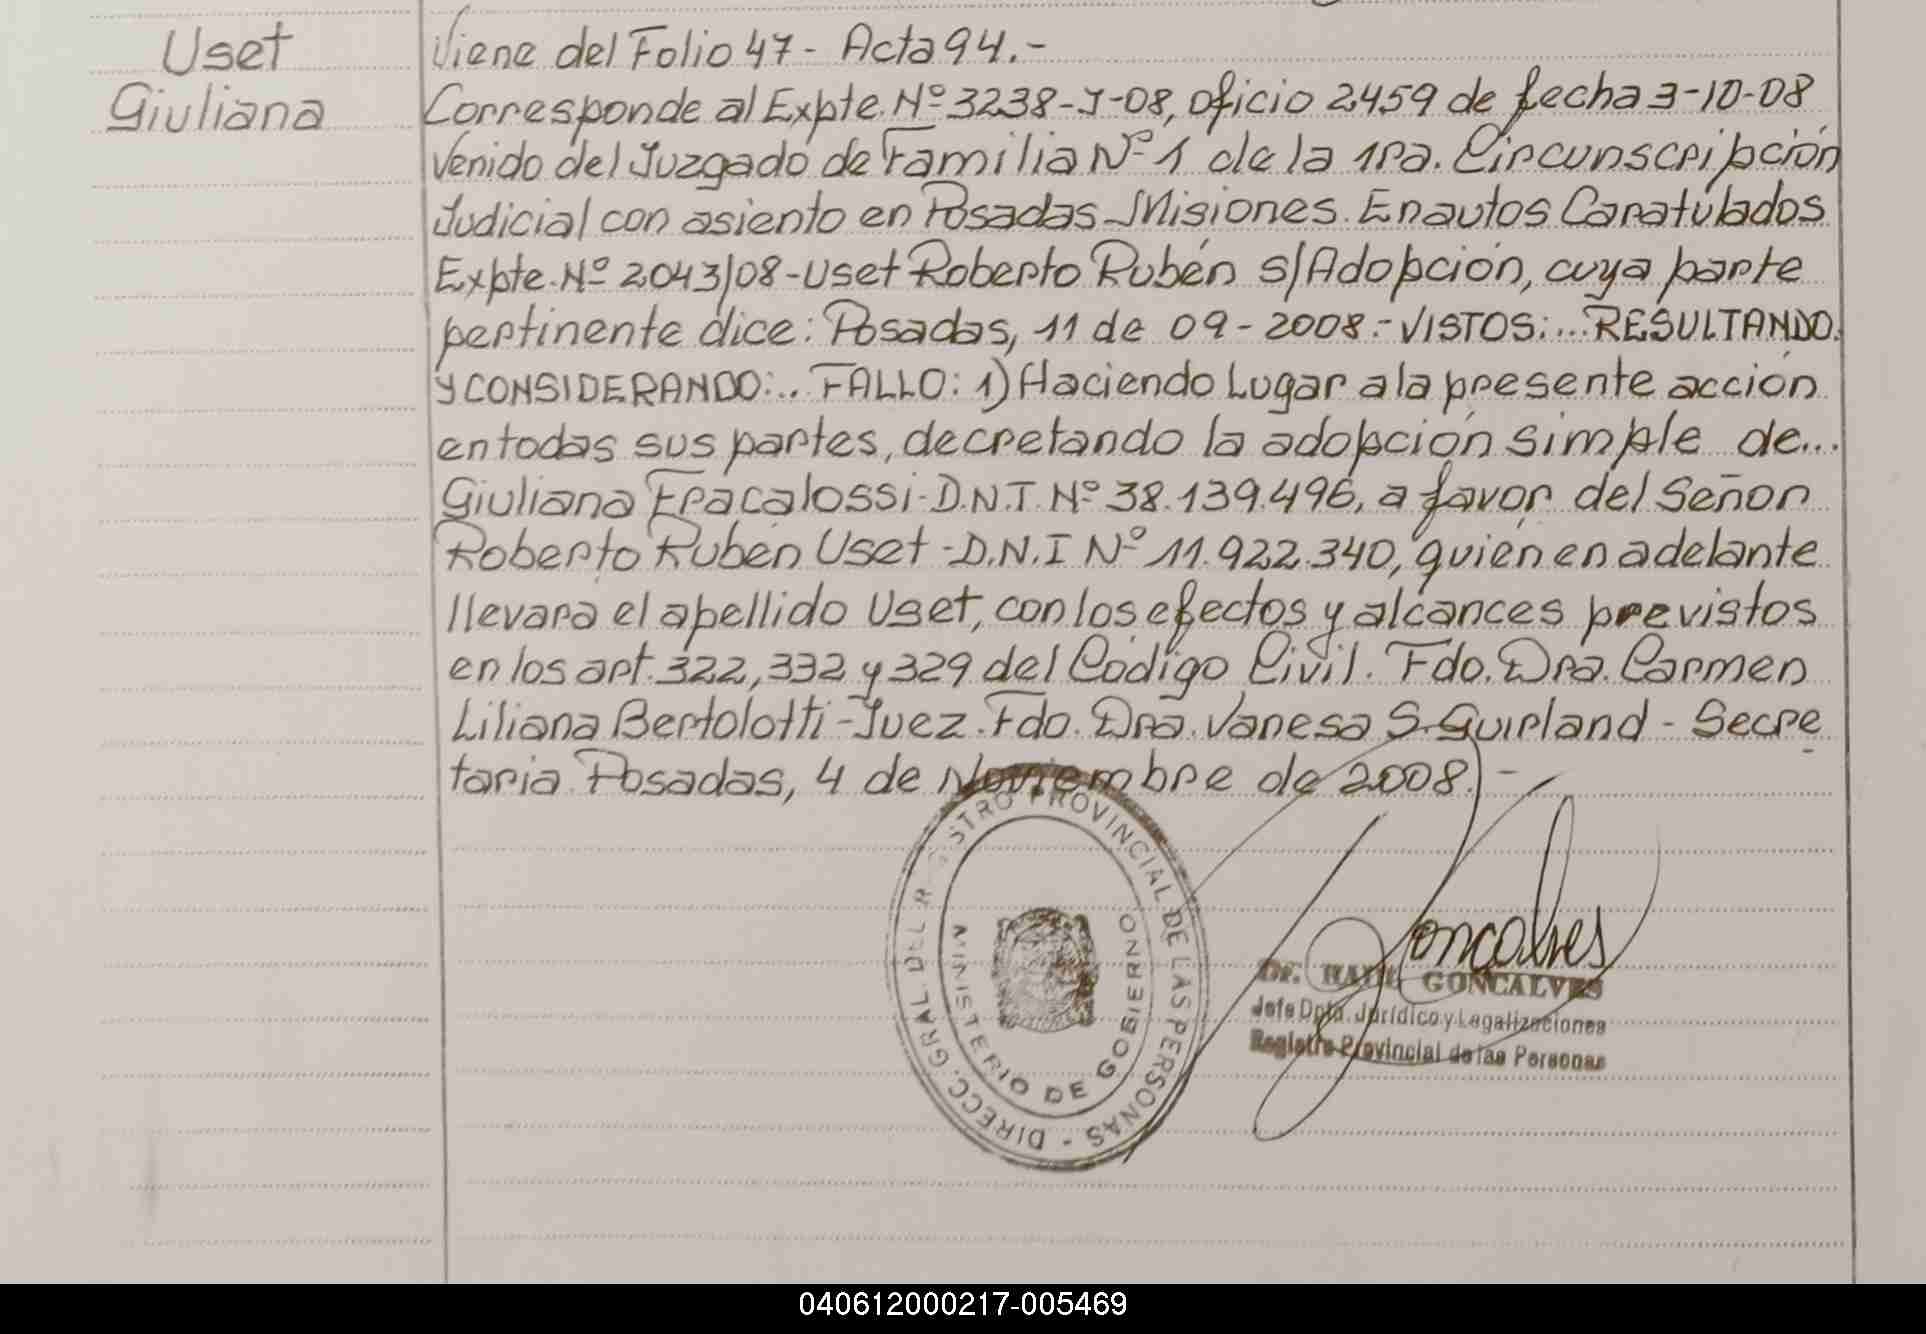 Uset
Giuliana
Viene del Folio 47 - Acta 94.-
Corresponde al Expte. Nº 3238-J-08, oficio 2459 de fecha 3-10-08
Venido del Juzgado de Familia Nº 1 de la 1ra. Circunscripción
Judicial con asiento en Posadas Misiones. En autos Caratulados
Expte. Nº 2043/08-Uset Roberto Rubén s/Adopción, cuya parte
pertinente dice: Posadas, 11 de 09-2008.- VISTOS:... RESULTANDO.
Y CONSIDERANDO:... FALLO: 1) Haciendo Lugar a la presente acción
en todas sus partes, decretando la adopción simple de...
Giuliana Fracalossi-D.N.I. Nº 38.139.496, a favor del Señor
Roberto Rubén Uset -D.N.I Nº 11.922.340, quien en adelante
llevara el apellido Uset, con los efectos y alcances previstos
en los art. 322, 332 y 329 del Código Civil. Fdo. Dra. Carmen
Liliana Bertolotti-Juez. Fdo. Dra. Vanesa S. Guirland - Secre
taria Posadas, 4 de Noviembre de 2008.-
DIRECC. GRAL. DEL R STRO PROVINCIAL DE LAS PERSONAS -
MINISTERIO DE GOBIERNO
Goncalves
Dr. RAUL GONCALVES
Jefe Dpto. Jurídico y Legalizaciones
Registro Provincial de las Personas
040612000217-005469